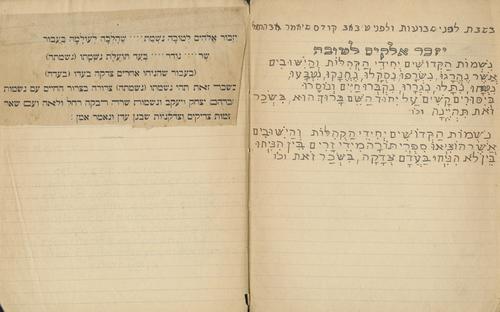 בשבת לפני שבועות ולפני ט באב קודם שיאמר
יזכר אלקים לטובה
נשמות הקדושים יחידי הקהלות והישובים
אשר נהרגו, נשרפו, נסקלו, נחנקו, נטבעו,
נתלו, נגררו, נקברו חיים ונוסרו
ביסורים קשים על יחוד השם ברוך הוא, בשכר
זאת תהיינה וכו
נשמות הקדושים יחידי הקהלות והישובים
אשר הוציאו ספרי תורה מידי זרים בין
בין לא הניחו בעדם צדקה, בשכר זאת וכו
יזכור אלהים לטובה נשמת.... שהלכה לעולמה בעבור
שר.... נודר.... בעד תועלת נשמתו (נשמתה)
(בעבור שהניחו אחרים צדקה בעדו (בעדה)
בשכר זאת תהי נשמתו (נשמתה) צרורה בצרור החיים עם נשמות
אברהם יצחק ויעקב ונשמות שרה רבקה רחל ולאה ועם שאר
נשמות צדיקים וצדקניות שבגן עדן ונאמר אמן: